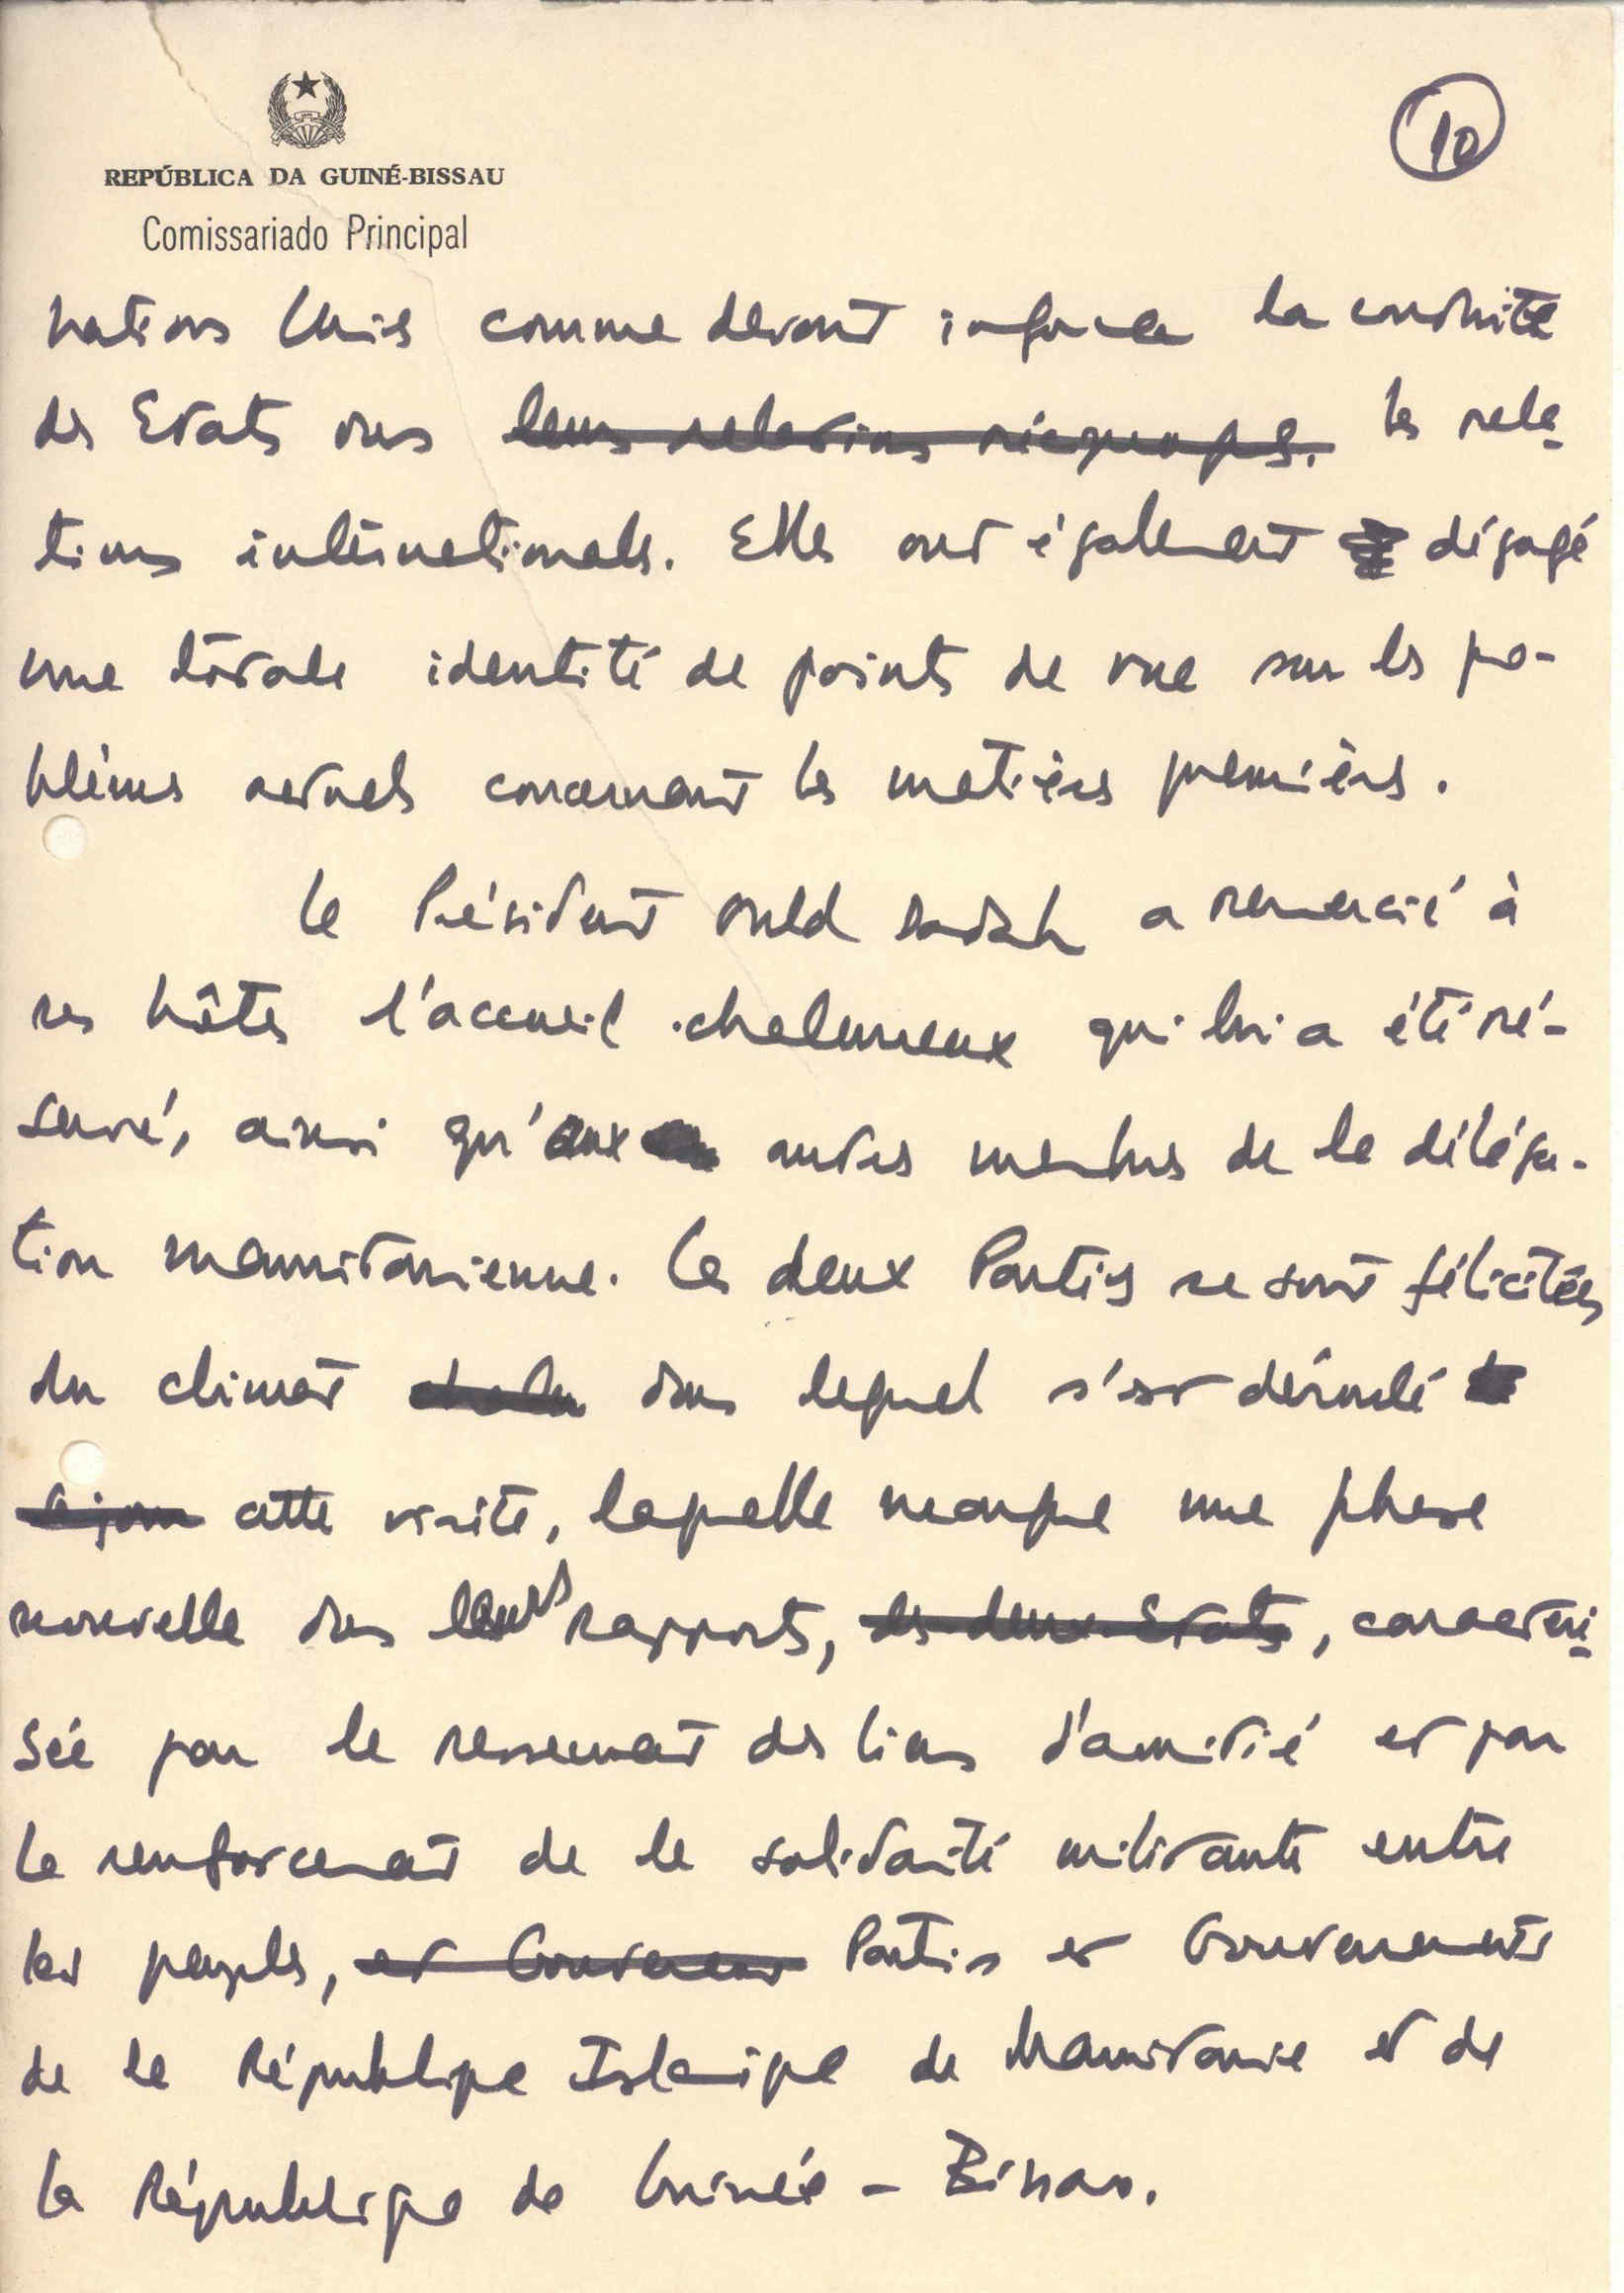 10
REPÚBLICA DA GUINÉ-BISSAU
Comissariado Principal
Nations Unies comme devant informer la conduite
des Etats dans leurs relations réciproques. les rela-
tions internationales. Elles ont également dégagé
une totale identité de points de vue sur les pro-
blèmes actuels concernant les matières premières.
Le Président Ould Dadah a remercié à
ses hôtes l'accueil chaleureux qui lui a été ré-
servé, ainsi qu'aux autres membres de la déléga-
tion mauritanienne. Les deux Parties se sont félicitées
du climat dans lequel s'est déroulé
séjour cette visite, laquelle marque une phase
nouvelle dans leurs rapports, des deux Etats, caractéri-
sée par le resserrement des liens d'amitié et par
le renforcement de la solidarité militante entre
les peuples, et Gouvernement Partis et Gouvernements
de la République Islamique de Mauritanie et de
la République de Guinée-Bissau.